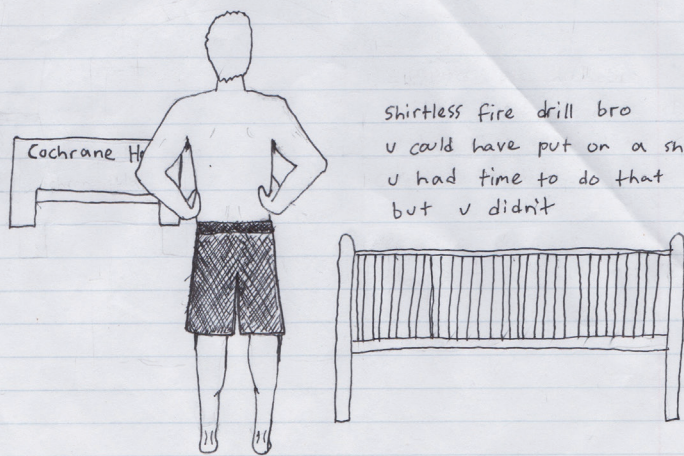 Cochrane
shirtless fire drill bro
u could have put on a
u had time to do that
but u didn't